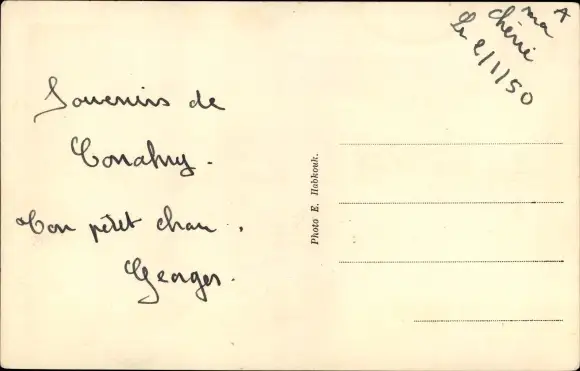 Souvenirs de
Conakry.
Ton petit chou.
Georges.
Photo E. Habkouk.
A
ma
chérie
Le 2/1/50